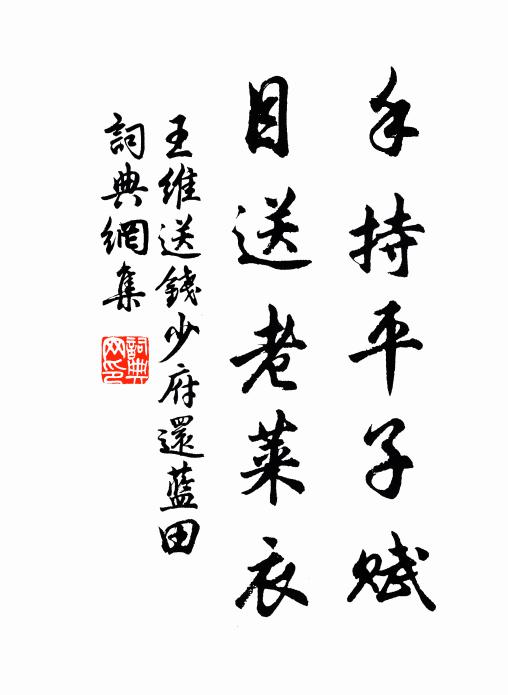 手持平子賦
目送老萊衣
王維送錢少府還藍田
詞典網集
詞典網印